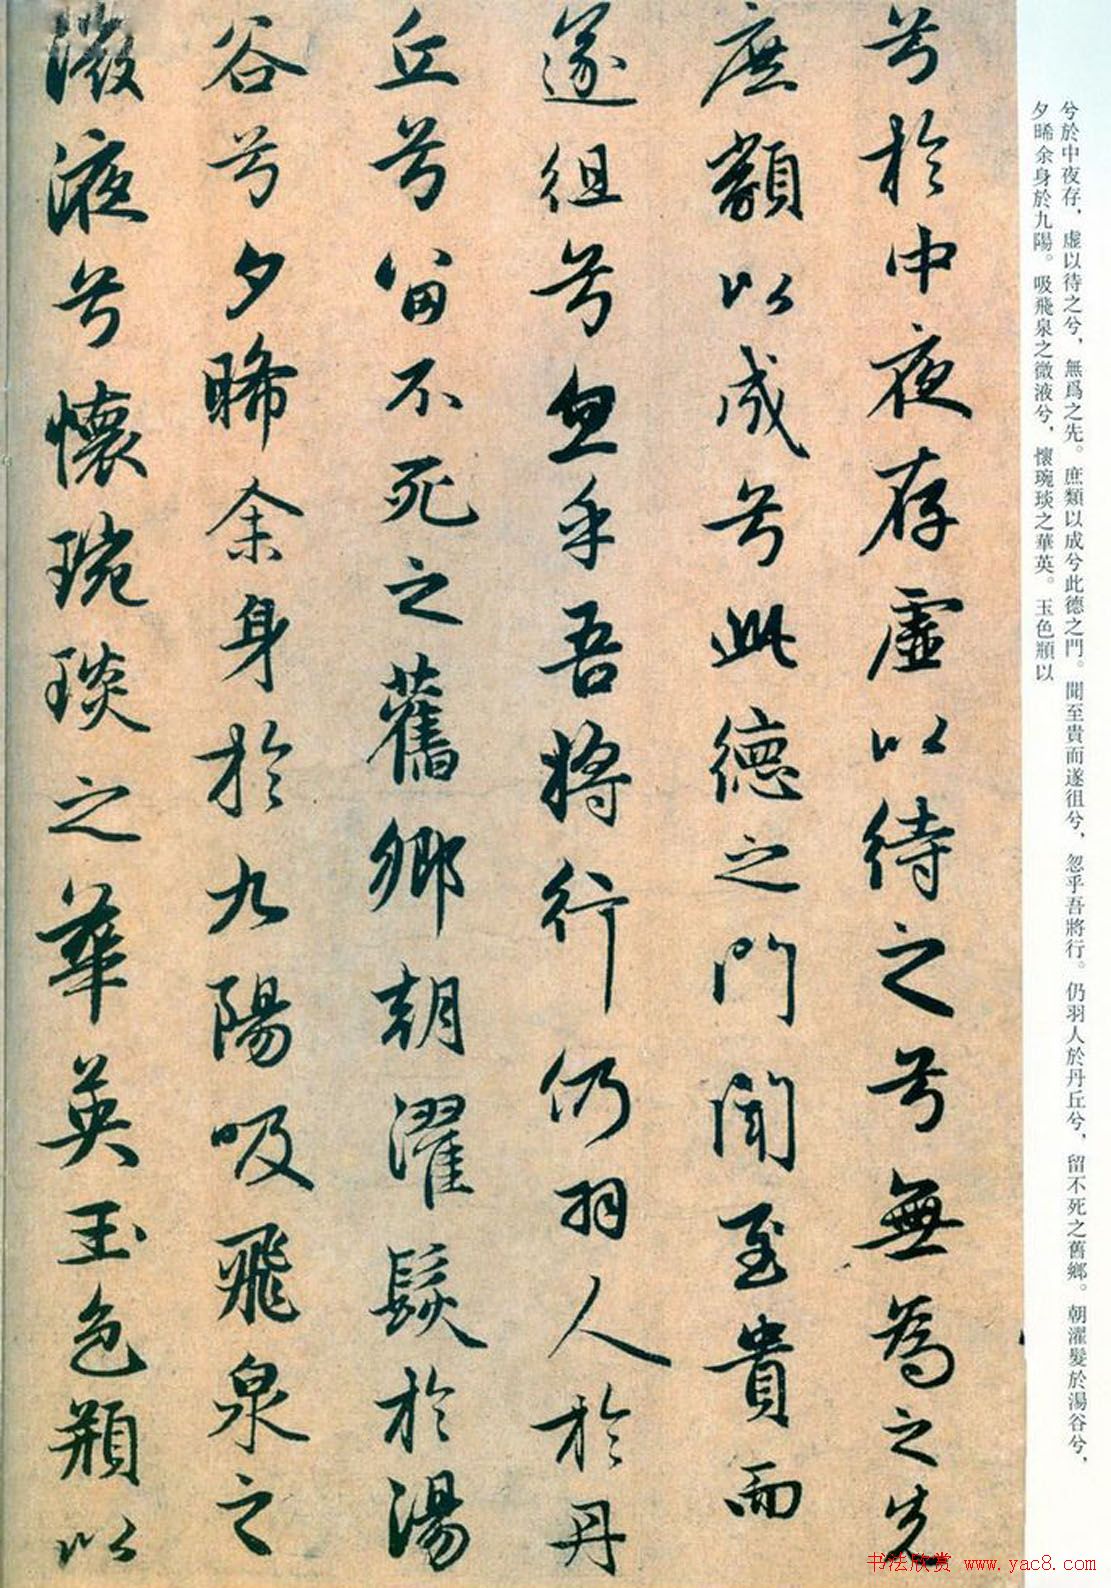 兮於中夜存，虛以待之兮，無爲之先。庶類以成兮此德之門。聞至貴而遂徂兮，忽乎吾將行。仍羽人於丹丘兮，留不死之舊鄉。朝濯髮於湯谷兮，
夕晞余身於九陽。吸飛泉之微液兮，懷琬琰之華英。玉色頩以
兮於中夜存虛以待之兮無為之先
庶類以成兮此德之門聞至貴而
遂徂兮忽乎吾將行仍羽人於丹
丘兮留不死之舊鄉朝濯髮於湯
谷兮夕晞余身於九陽吸飛泉之
微液兮懷琬琰之華英玉色頩以
书法欣赏 www.yac8.com